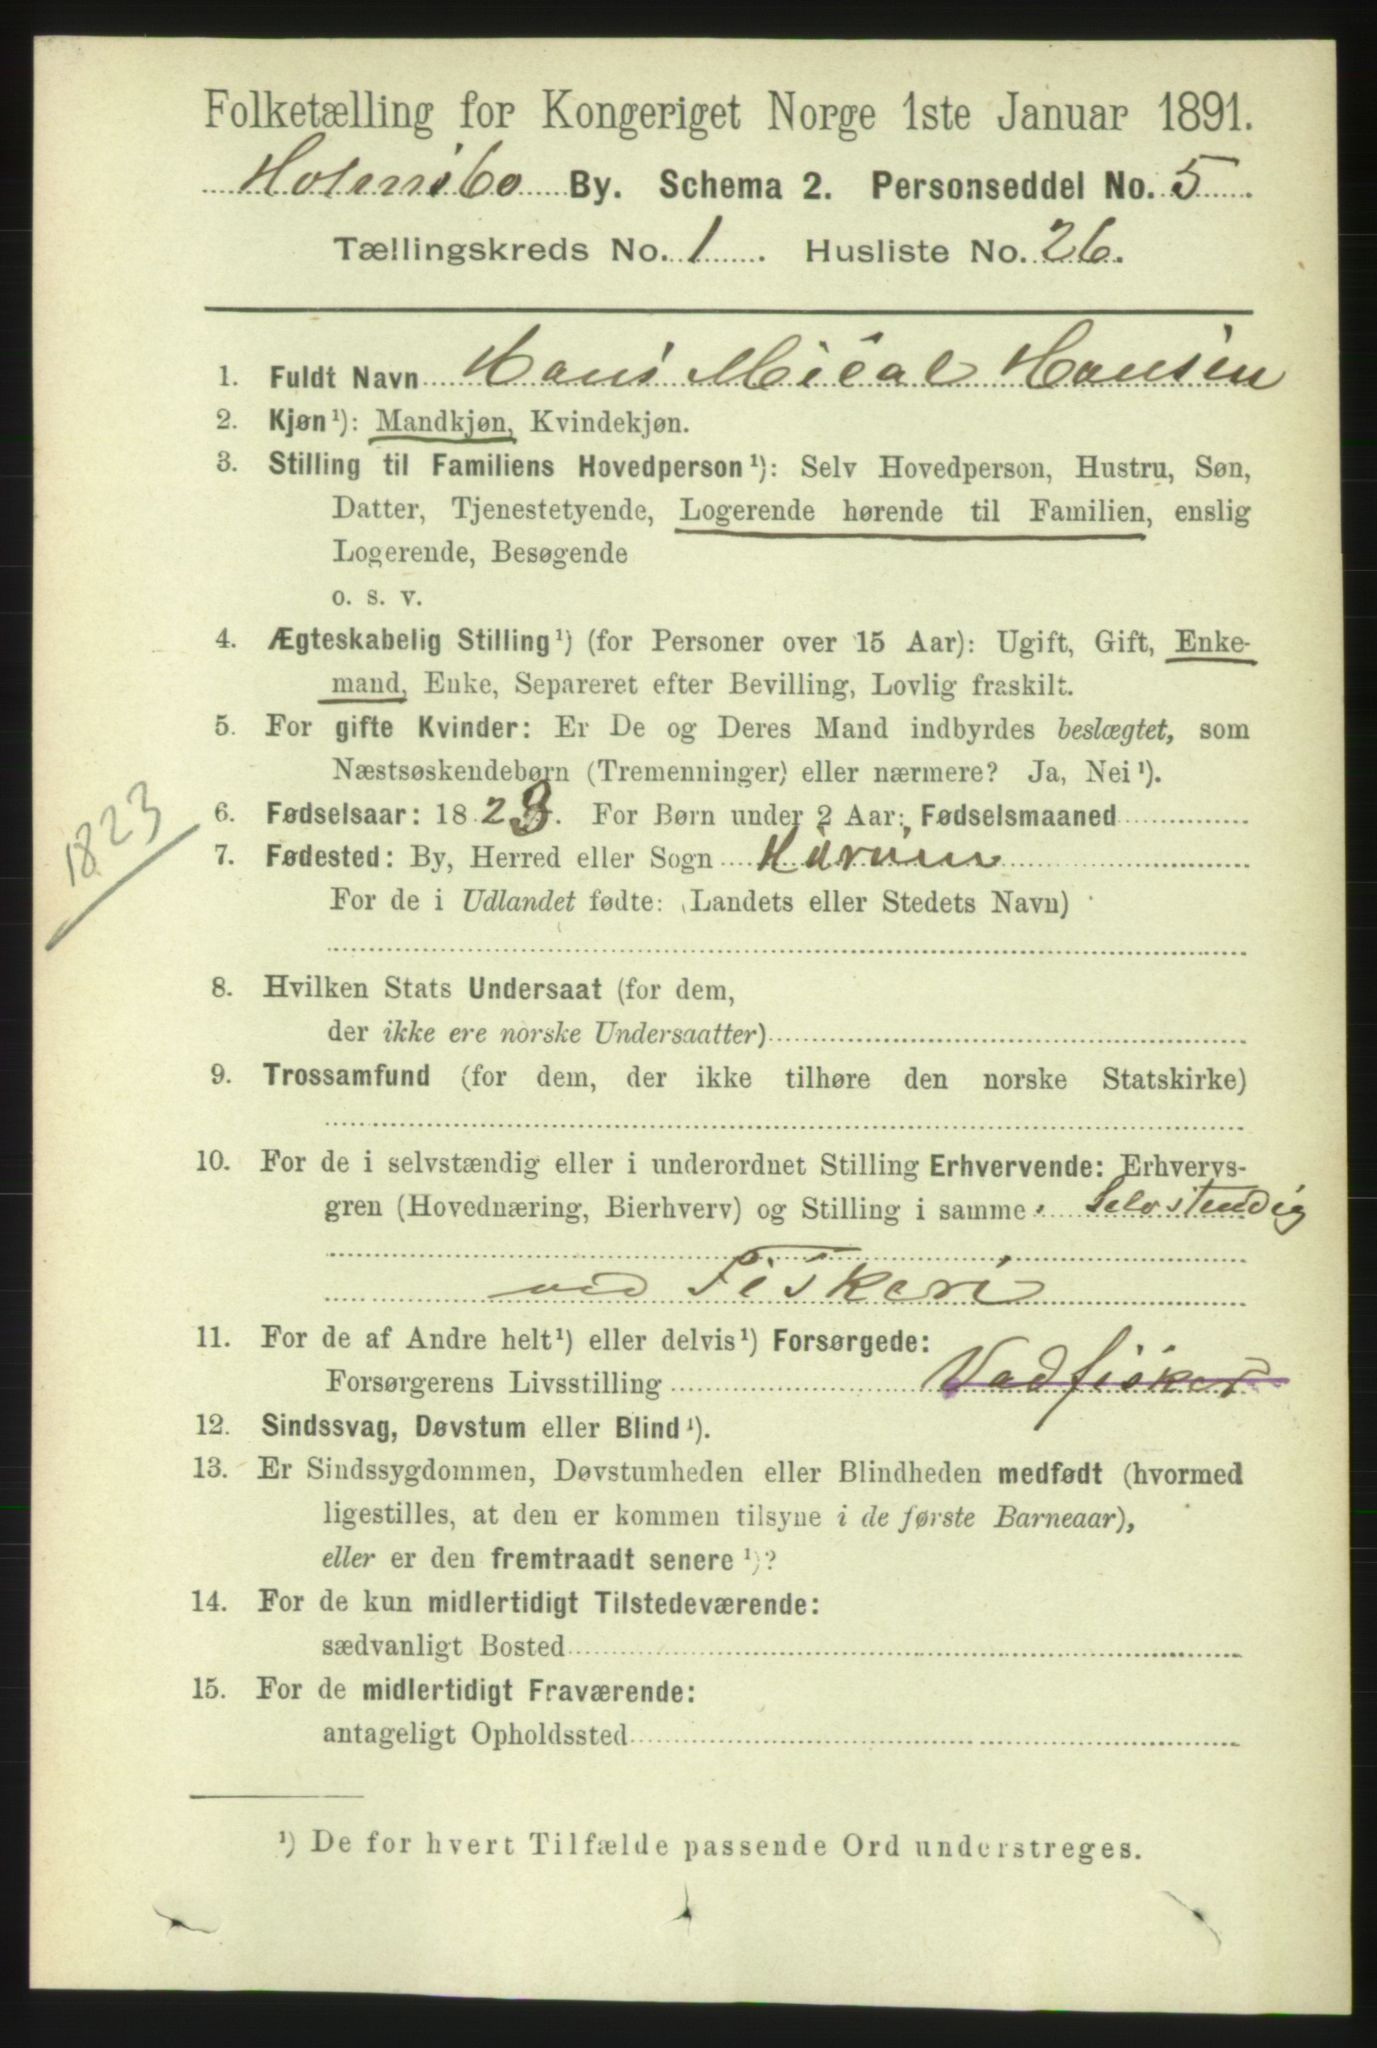 Folketælling for Kongeriget Norge 1ste Januar 1891.
Holmsbo By. Schema 2. Personseddel No. 5.
Tællingskreds No. 1. Husliste No. 26.
1. Fuldt Navn Hans Mical Hansen
2. Kjøn¹): Mandkjøn, Kvindekjøn.
3. Stilling til Familiens Hovedperson¹): Selv Hovedperson, Hustru, Søn,
Datter, Tjenestetyende, Logerende hørende til Familien, enslig
Logerende, Besøgende
o. s. v.
4. Ægteskabelig Stilling¹) (for Personer over 15 Aar): Ugift, Gift, Enke-
mand, Enke, Separeret efter Bevilling, Lovlig fraskilt.
5. For gifte Kvinder: Er De og Deres Mand indbyrdes beslægtet, som
Næstsøskendebørn (Tremenninger) eller nærmere? Ja, Nei¹).
1823
6. Fødselsaar: 1823. For Børn under 2 Aar: Fødselsmaaned
7. Fødested: By, Herred eller Sogn Hurum
For de i Udlandet fødte: (Landets eller Stedets Navn)
8. Hvilken Stats Undersaat (for dem,
der ikke ere norske Undersaatter)
9. Trossamfund (for dem, der ikke tilhøre den norske Statskirke)
10. For de i selvstændig eller i underordnet Stilling Erhvervende: Erhvervs-
gren (Hovednæring, Bierhverv) og Stilling i samme. Selvstendig
ved Fiskeri
11. For de af Andre helt¹) eller delvis¹) Forsørgede:
Forsørgerens Livsstilling Vadfisker
12. Sindssvag, Døvstum eller Blind¹).
13. Er Sindssygdommen, Døvstumheden eller Blindheden medfødt (hvormed
ligestilles, at den er kommen tilsyne i de første Barneaar),
eller er den fremtraadt senere¹)?
14. For de kun midlertidigt Tilstedeværende:
sædvanligt Bosted
15. For de midlertidigt Fraværende:
antageligt Opholdssted
¹) De for hvert Tilfælde passende Ord understreges.